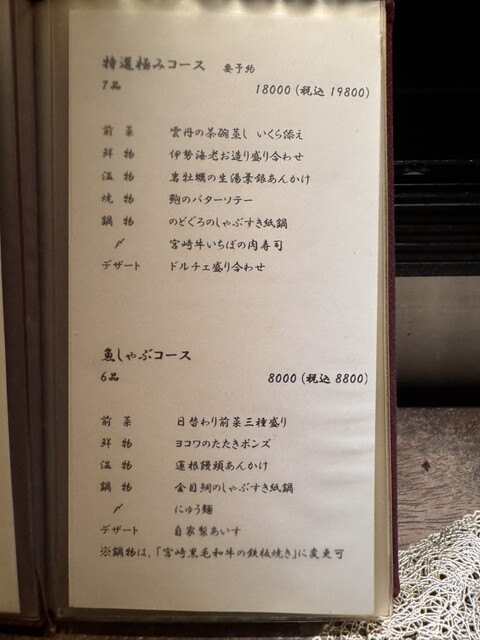 特選極みコース 要予約
7品 18000(税込 19800)
前菜 雲丹の茶碗蒸し いくら添え
鮮物 伊勢海老お造り盛り合わせ
温物 岩牡蠣の生湯葉銀あんかけ
焼物 鮑のバターソテー
鍋物 のどぐろのしゃぶすき紙鍋
〆 宮崎牛いちぼの肉寿司
デザート ドルチェ盛り合わせ
魚しゃぶコース
6品 8000(税込 8800)
前菜 日替わり前菜三種盛り
鮮物 ヨコワのたたきポンズ
温物 蓮根饅頭あんかけ
鍋物 金目鯛のしゃぶすき紙鍋
〆 にゅう麺
デザート 自家製あいす
※鍋物は、「宮崎黒毛和牛の鉄板焼き」に変更可